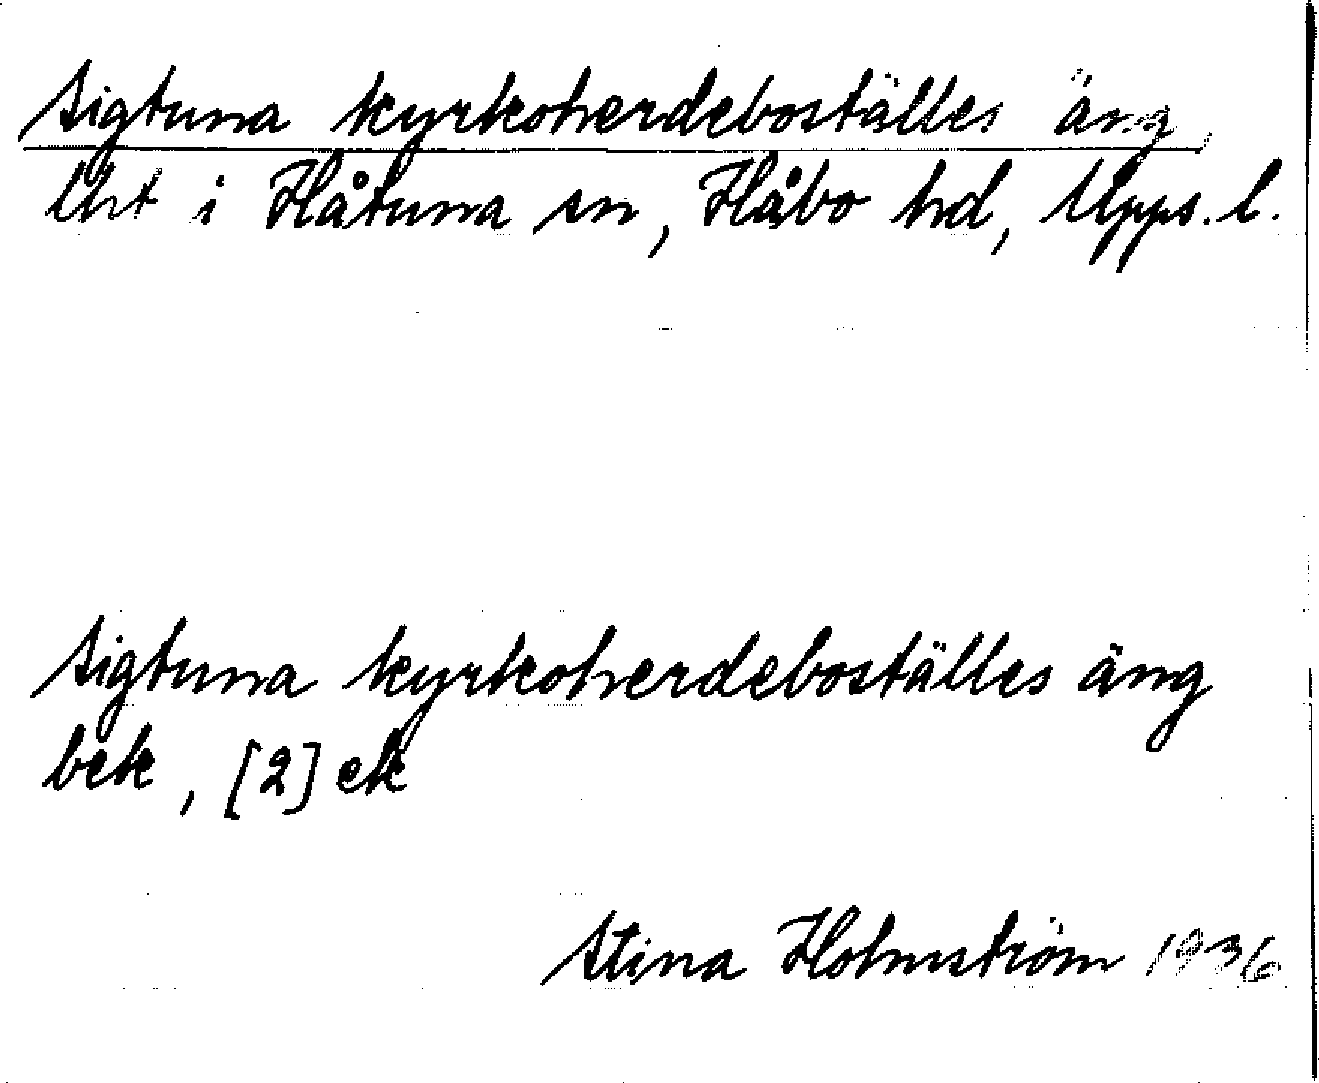 Sigtuna kyrkoherdeboställes äng
lht i Håtuna sn, Håbo hd, Upps. l.
Sigtuna kyrkoherdeboställes äng
bek, [2] ek
Stina Holmström 1936